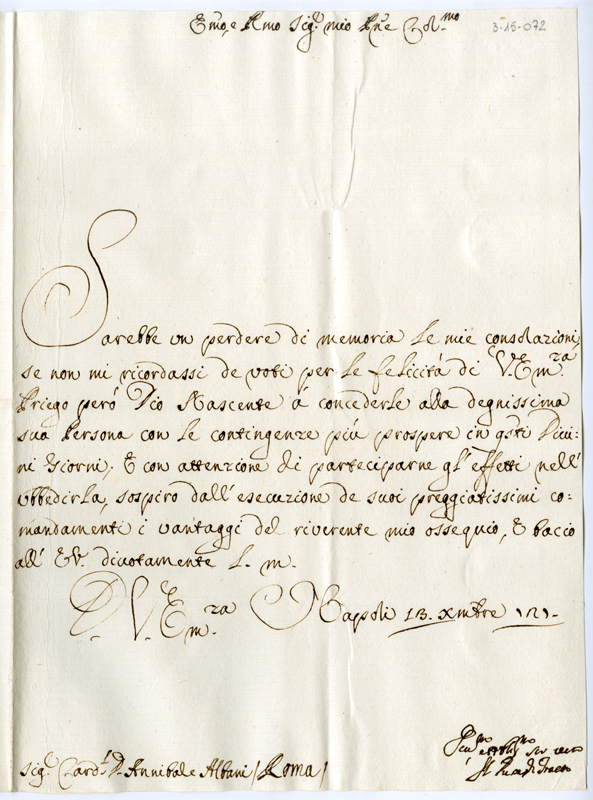 Emo, e Rmo Sig.r mio Prne Col.mo
3-15-072
Sarebbe un perdere di memoria le mie consolazioni,
se non mi ricordassi de voti per le felicità di V. Em.za
Priego però Dio Nascente á concederle alla degnissima
sua Persona con le contingenze piú prospere in qsti Divi:
ni Giorni; E con attenzione di parteciparne gl'effetti nell'
ubbedirla, sospiro dall'esecuzione de suoi preggiatissimi co:
mandamenti i vantaggi del riverente mio ossequio, E baccio
all' EV. divotamente l. m.
D. V. Em.za Napoli 13. Xmbre
Sig.r Card.l D. Annibale Albani / Roma /